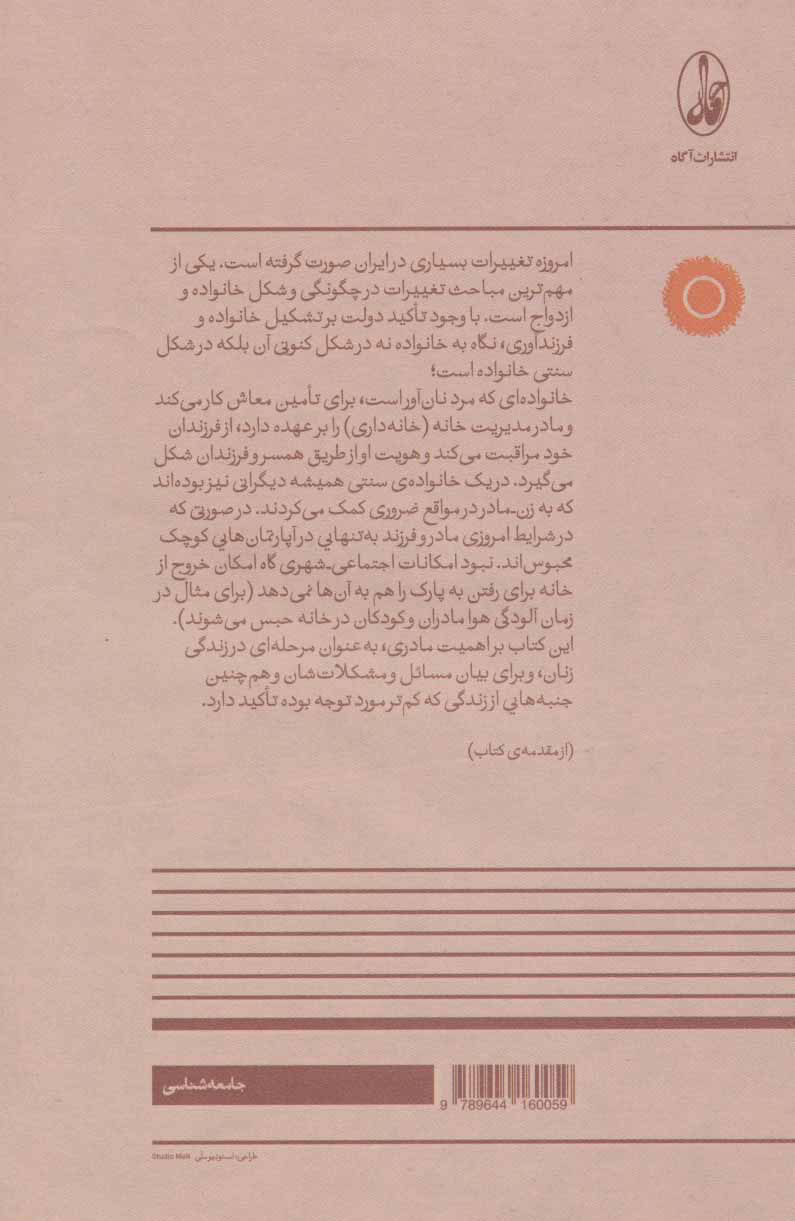 آگاه
انتشارات آگاه
امروزه تغییرات بسیاری در ایران صورت گرفته است. یکی از
مهم‌ترین مباحث تغییرات در چگونگی و شکل خانواده و
ازدواج است. با وجود تأکید دولت بر تشکیل خانواده و
فرزندآوری، نگاه به خانواده نه در شکل کنونی آن بلکه در شکل
سنتی خانواده است؛
خانواده‌ای که مرد نان‌آور است، برای تأمین معاش کار می‌کند
و مادر مدیریت خانه (خانه‌داری) را بر عهده دارد، از فرزندان
خود مراقبت می‌کند و هویت او از طریق همسر و فرزندان شکل
می‌گیرد. در یک خانواده‌ی سنتی همیشه دیگرانی نیز بوده‌اند
که به زن‌ـ‌مادر در مواقع ضروری کمک می‌کردند. در صورتی که
در شرایط امروزی مادر و فرزند به‌تنهایی در آپارتمان‌هایی کوچک
محبوس‌اند. نبود امکانات اجتماعی‌ـ‌شهری گاه امکان خروج از
خانه برای رفتن به پارک را هم به آن‌ها نمی‌دهد (برای مثال در
زمان آلودگی هوا مادران و کودکان در خانه حبس می‌شوند).
این کتاب بر اهمیت مادری، به عنوان مرحله‌ای در زندگی
زنان، و برای بیان مسائل و مشکلات‌شان و هم‌چنین
جنبه‌هایی از زندگی که کم‌تر مورد توجه بوده تأکید دارد.
(از مقدمه‌ی کتاب)
جامعه‌شناسی
9 789644 160059
طراحی: استودیو ملّی Studio Melli